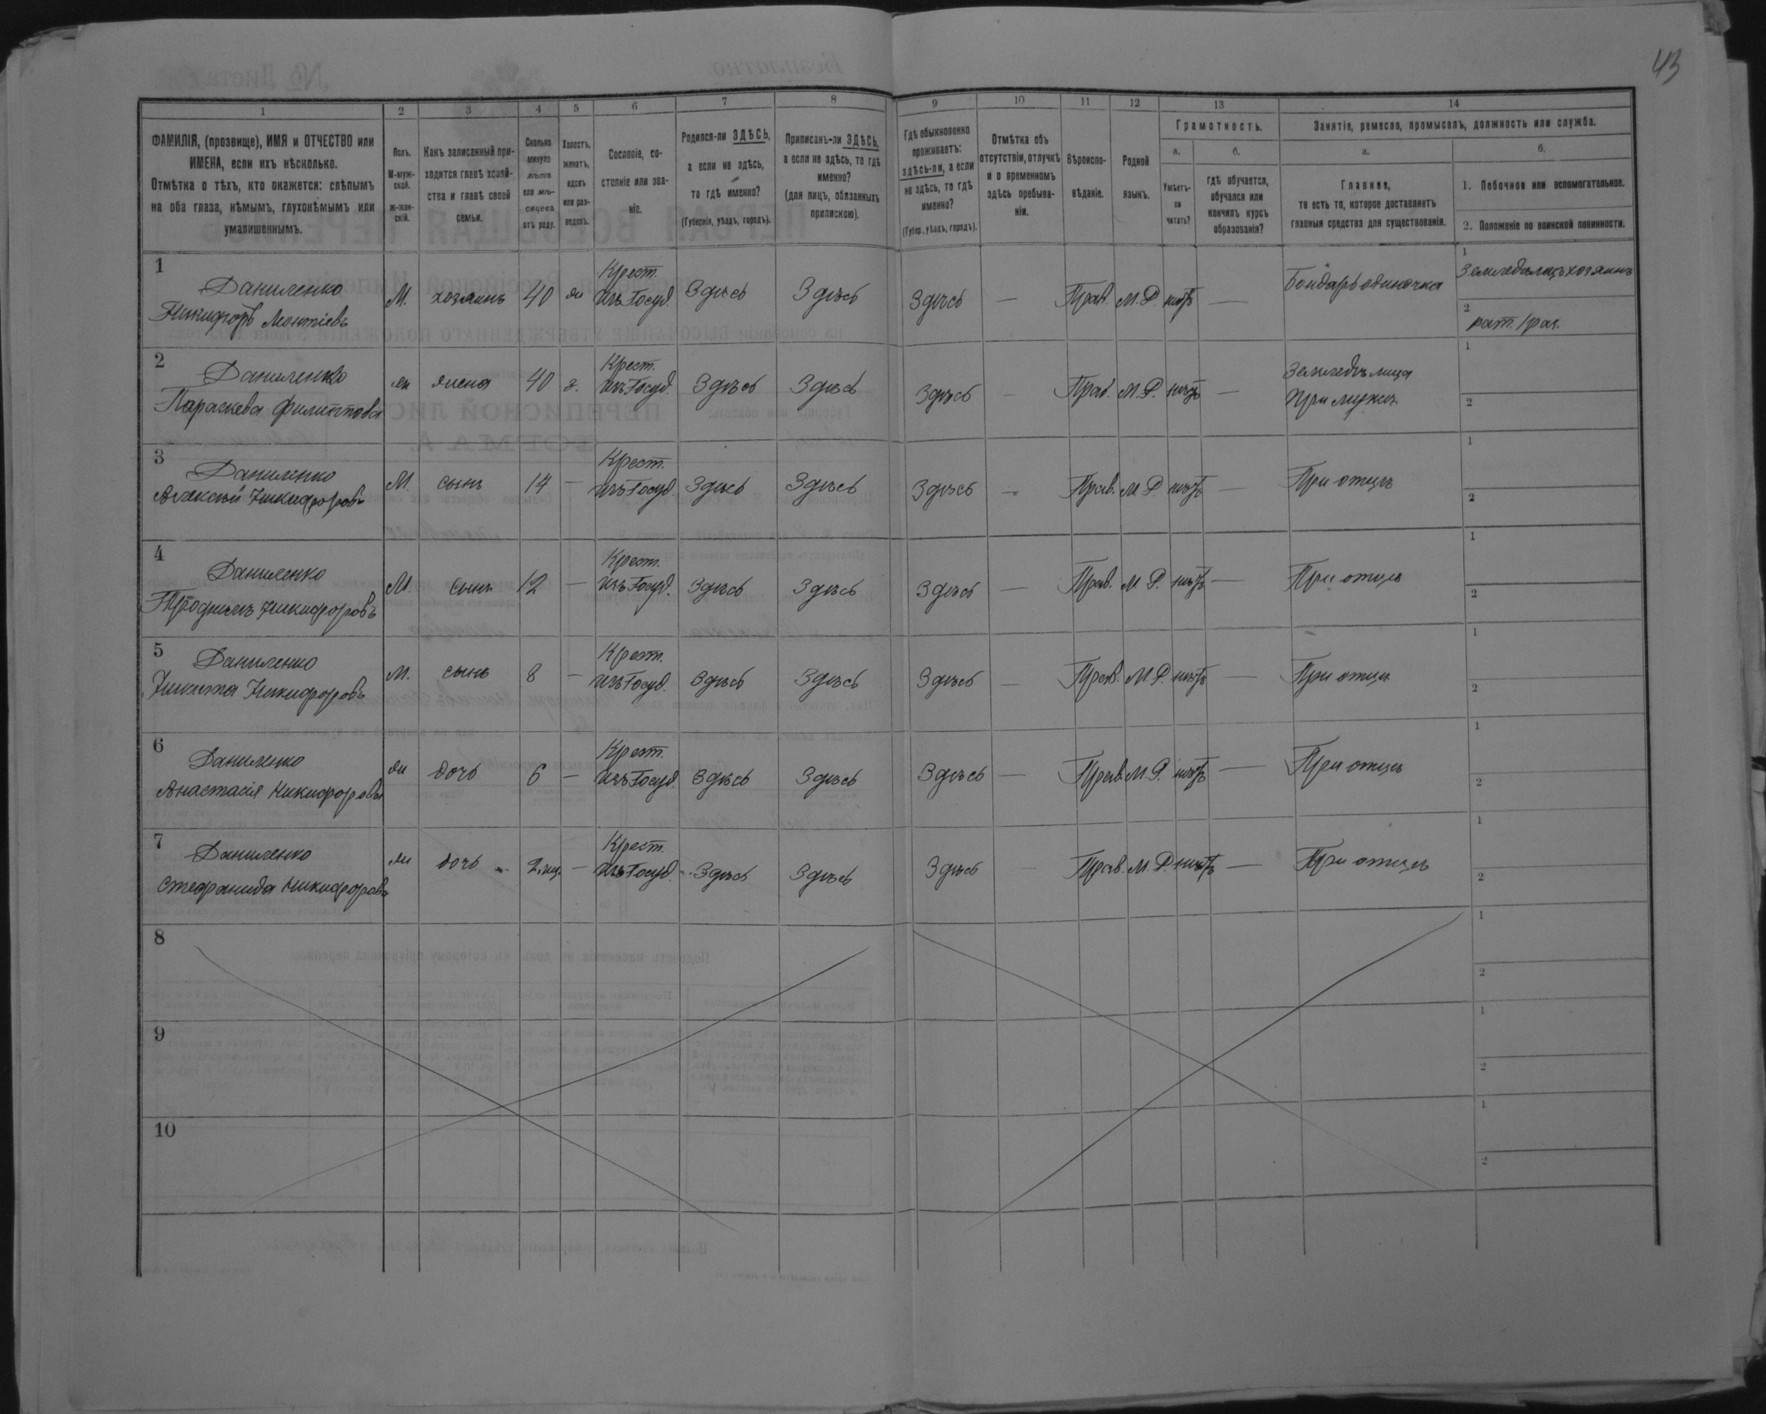 43
1 2 3 4 5 6 7 8 9 10 11 12 13 14
ФАМИЛІЯ, (прозвище), ИМЯ и ОТЧЕСТВО или
ИМЕНА, если ихъ нѣсколько.
Отмѣтка о тѣхъ, кто окажется: слѣпымъ
на оба глаза, нѣмымъ, глухонѣмымъ или
умалишеннымъ.
Полъ.
М-муж-
ской.
Ж-жен-
скій.
Какъ записанный при-
ходится главѣ хозяй-
ства и главѣ своей
семьи.
Сколько
минуло
лѣтъ
или мѣ-
сяцевъ
отъ роду.
Холостъ,
женатъ,
вдовъ
или раз-
веденъ.
Сословіе, со-
стояніе или зва-
ніе.
Родился-ли ЗДѢСЬ,
а если не здѣсь,
то гдѣ именно?
(Губернія, уѣздъ, городъ).
Приписанъ-ли ЗДѢСЬ,
а если не здѣсь, то гдѣ
именно?
(для лицъ, обязанныхъ
припискою).
Гдѣ обыкновенно
проживаетъ:
здѣсь-ли, а если
не здѣсь, то гдѣ
именно?
(Губер., уѣздъ, городъ).
Отмѣтка объ
отсутствіи, отлучкѣ
и о временномъ
здѣсь пребыва-
ніи.
Вѣроиспо-
вѣданіе.
Родной
языкъ.
Грамотность.
а.
Умѣетъ-
ли
читать?
б.
гдѣ обучается,
обучался или
кончилъ курсъ
образованія?
Занятіе, ремесло, промыселъ, должность или служба.
а.
Главное,
то есть то, которое доставляетъ
главныя средства для существованія.
б.
1. Побочное или вспомогательное.
2. Положеніе по воинской повинности.
1
Даниленко
Никифоръ Леонтіевъ
М. хозяинъ 40 ж
Крест.
изъ Госуд. Здѣсь Здѣсь Здѣсь — Прав. М.Р. нѣтъ —
Бондарь одиночка
1 Земледѣлецъ хозяинъ
2
2
Даниленко
Параскева Филиппова
ж жена 40 з.
Крест.
изъ Госуд. Здѣсь Здѣсь Здѣсь — Прав. М.Р. нѣтъ —
Земледѣлица
При мужѣ
1
2
3
Даниленко
Алексѣй Никифоровъ
М сынъ 14 —
Крест.
изъ Госуд. Здѣсь Здѣсь Здѣсь — Прав. М.Р. нѣтъ — При отцѣ
1
2
4
Даниленко
Никифоровъ
М. сынъ 12 —
Крест.
изъ Госуд. Здѣсь Здѣсь Здѣсь — Прав. М Р. нѣтъ — При отцѣ
1
2
5
Даниленко
Никита Никифоровъ
М. сынъ 8 —
Крест.
изъ Госуд. Здѣсь Здѣсь Здѣсь — Прав. М Р. нѣтъ — При отцѣ
1
2
6
Даниленко
Анастасія Никифорова
ж дочь 6 —
Крест.
изъ Госуд. Здѣсь Здѣсь Здѣсь — Прав. М.Р. нѣтъ — При отцѣ
1
2
7
Даниленко
Стефанида Никифорова
ж дочь 2 мц. —
Крест.
изъ Госуд. Здѣсь Здѣсь Здѣсь — Прав. М.Р. нѣтъ — При отцѣ
1
2
8
1
2
9
1
2
10
1
2